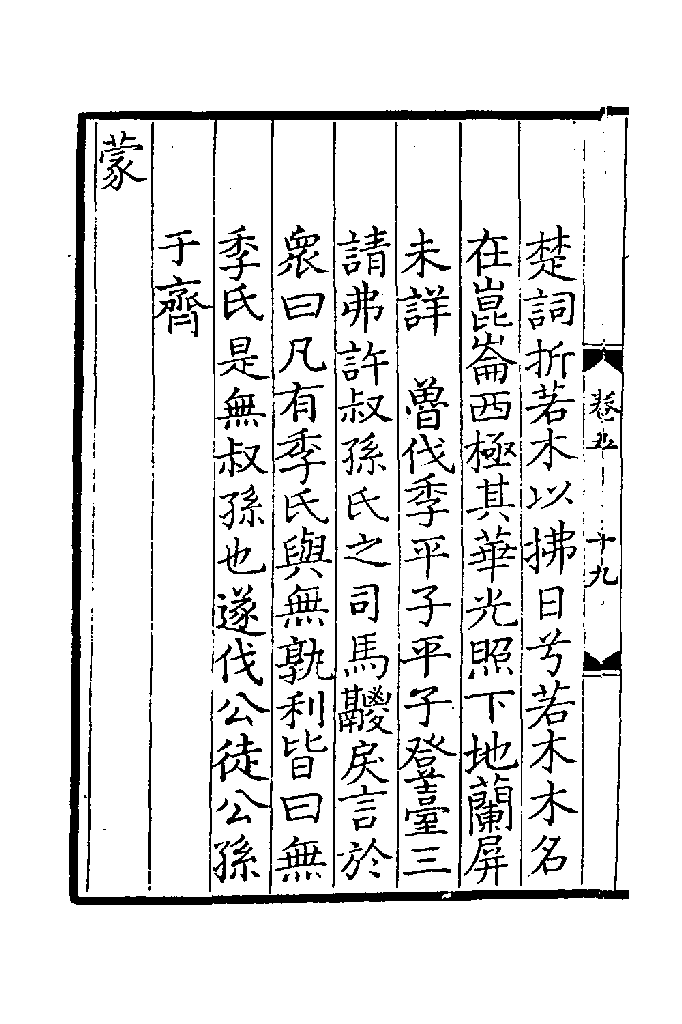 楚詞折若木以拂日兮若木木名
在崑崙西極其華光照下地蘭屏
未詳　魯伐季平子平子登臺三
請弗許叔孫氏之司馬鬷戾言於
衆曰凡有季氏與無孰利皆曰無
季氏是無叔孫也遂伐公徒公孫
于齊
蒙
卷五
十九